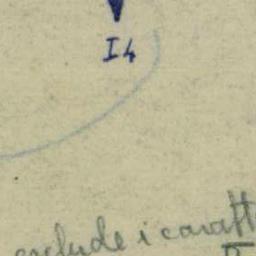 I4
esclude i caratt